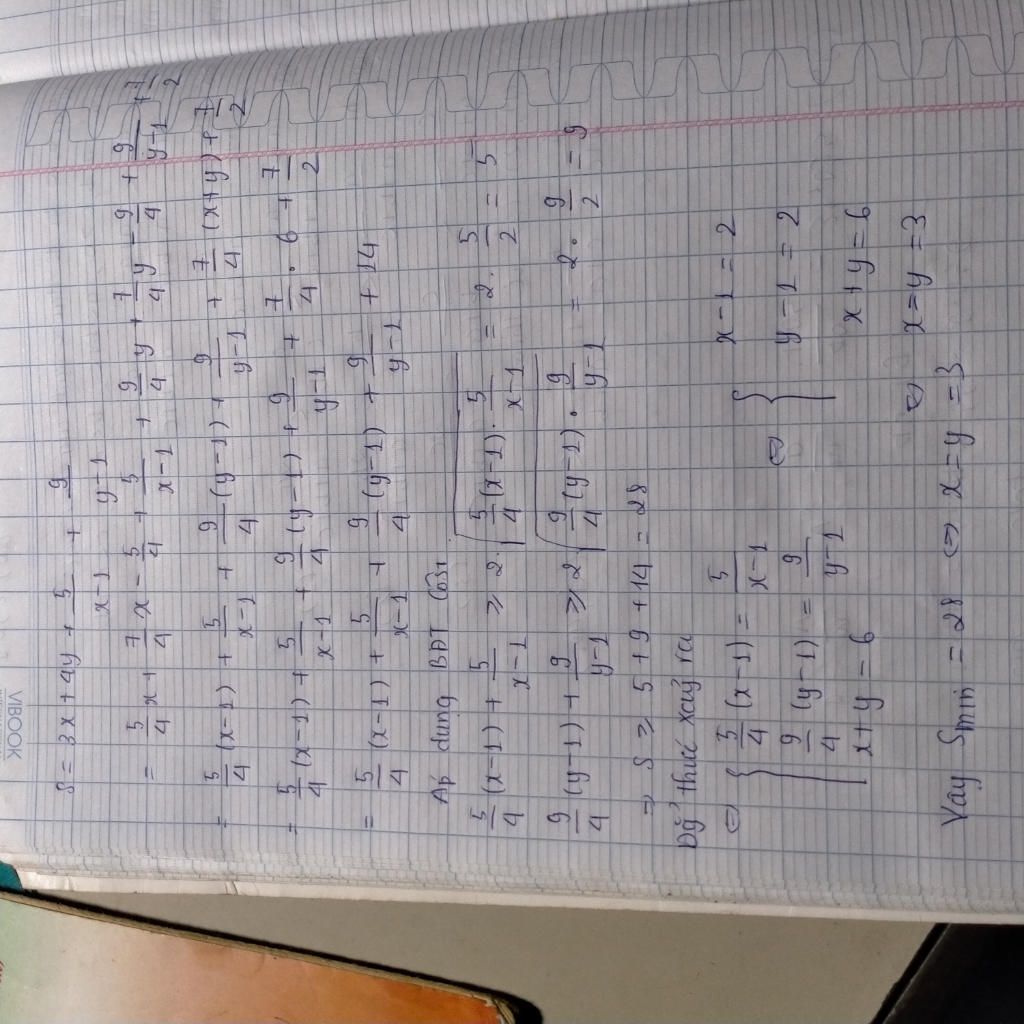 VIBOOK
S = 3x + 4y + 5/(x-1) + 9/(y-1)
= 5/4 x + 7/4 x - 5/4 + 5/(x-1) + 9/4 y + 7/4 y - 9/4 + 9/(y-1) + 7/2
= 5/4 (x-1) + 5/(x-1) + 9/4 (y-1) + 9/(y-1) + 7/4 (x+y) + 7/2
= 5/4 (x-1) + 5/(x-1) + 9/4 (y-1) + 9/(y-1) + 7/4 . 6 + 7/2
= 5/4 (x-1) + 5/(x-1) + 9/4 (y-1) + 9/(y-1) + 14
Áp dụng BĐT Côsi
5/4 (x-1) + 5/(x-1) ≥ 2.√(5/4 (x-1) . 5/(x-1)) = 2. 5/2 = 5
9/4 (y-1) + 9/(y-1) ≥ 2√(9/4 (y-1) . 9/(y-1)) = 2. 9/2 = 9
=> S ≥ 5 + 9 + 14 = 28
thức xảy ra
⇔ { 5/4 (x-1) = 5/(x-1) ⇔ { x-1 = 2
9/4 (y-1) = 9/(y-1) y-1 = 2
x+y = 6 x+y = 6
⇔ x = y = 3
Vậy Smin = 28 ⇔ x = y = 3